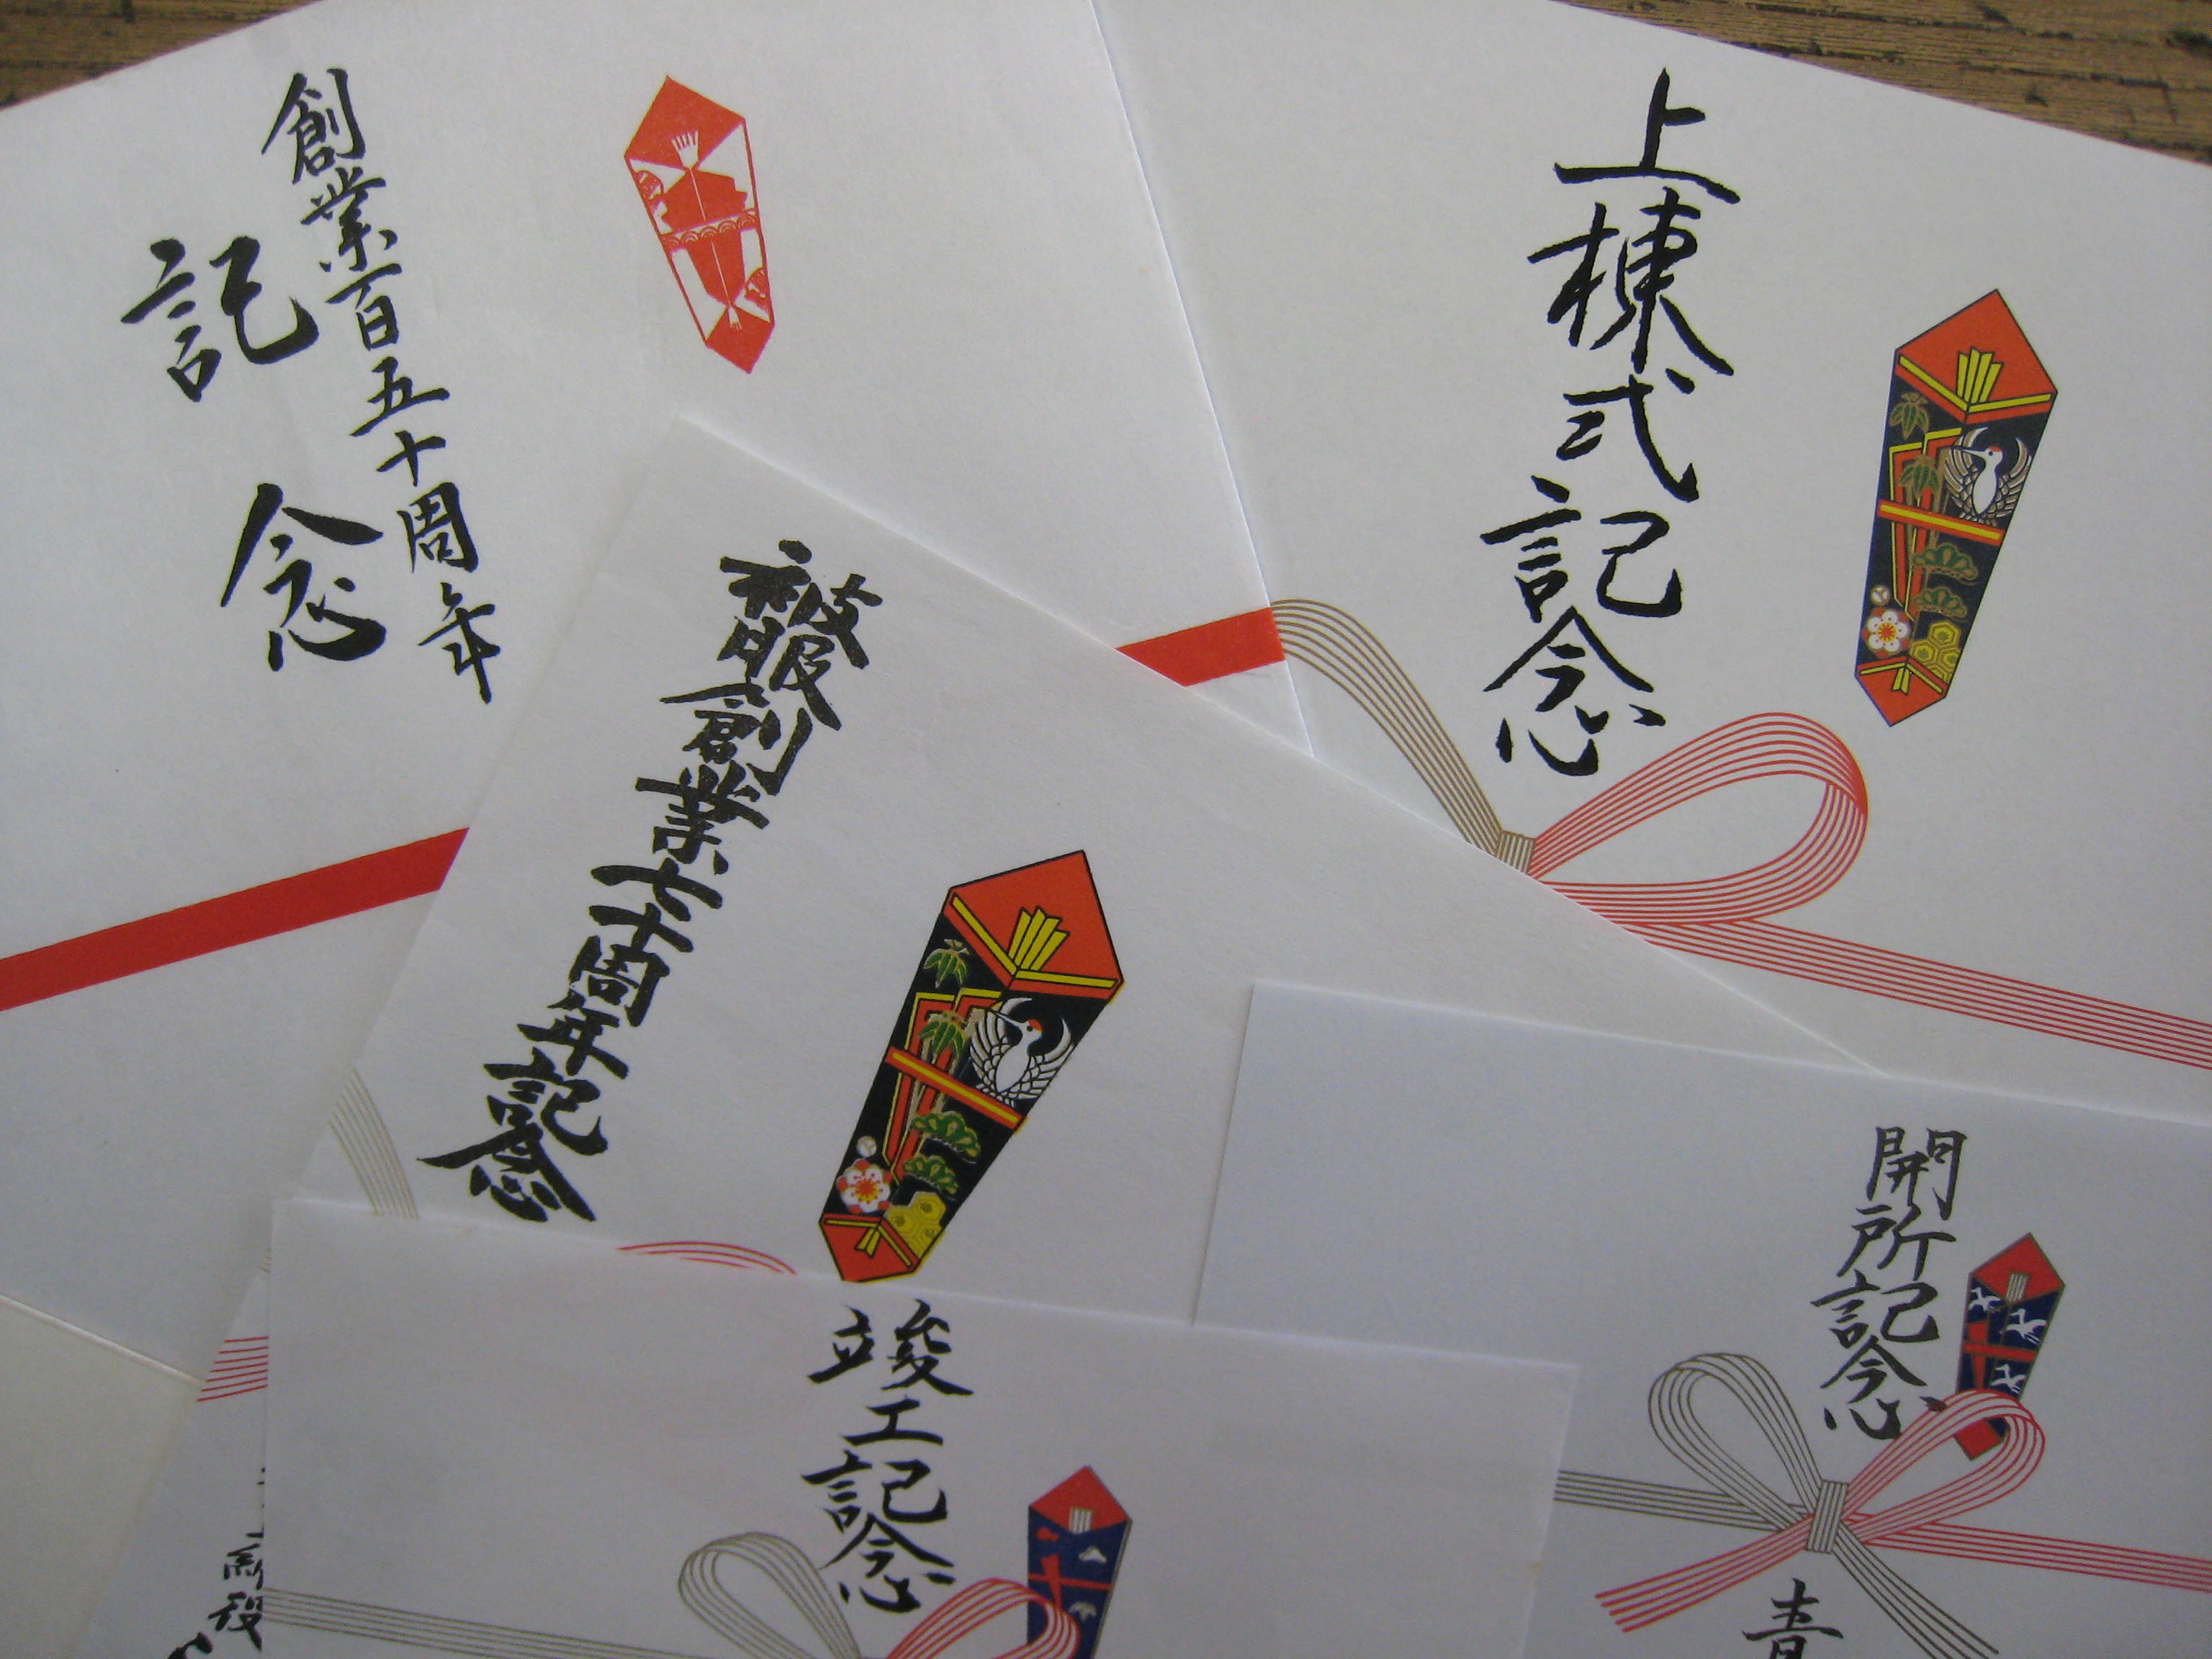 創業百五十周年
記念
上棟式記念
祝創業七十周年記念
開所記念
竣工記念
青